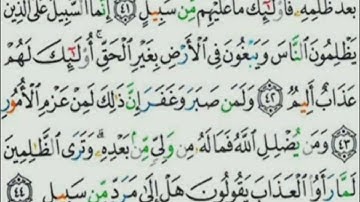 بَعْدَ ظُلْمِهِۦ فَأُو۟لَٰٓئِكَ مَا عَلَيْهِم مِّن سَبِيلٍ ٤١ إِنَّمَا ٱلسَّبِيلُ عَلَى ٱلَّذِينَ
يَظْلِمُونَ ٱلنَّاسَ وَيَبْغُونَ فِى ٱلْأَرْضِ بِغَيْرِ ٱلْحَقِّ ۚ أُو۟لَٰٓئِكَ لَهُمْ
عَذَابٌ أَلِيمٌ ٤٢ وَلَمَن صَبَرَ وَغَفَرَ إِنَّ ذَٰلِكَ لَمِنْ عَزْمِ ٱلْأُمُورِ
٤٣ وَمَن يُضْلِلِ ٱللَّهُ فَمَا لَهُۥ مِن وَلِىٍّ مِّنۢ بَعْدِهِۦ ۗ وَتَرَى ٱلظَّٰلِمِينَ
لَمَّا رَأَوُا۟ ٱلْعَذَابَ يَقُولُونَ هَلْ إِلَىٰ مَرَدٍّ مِّن سَبِيلٍ ٤٤